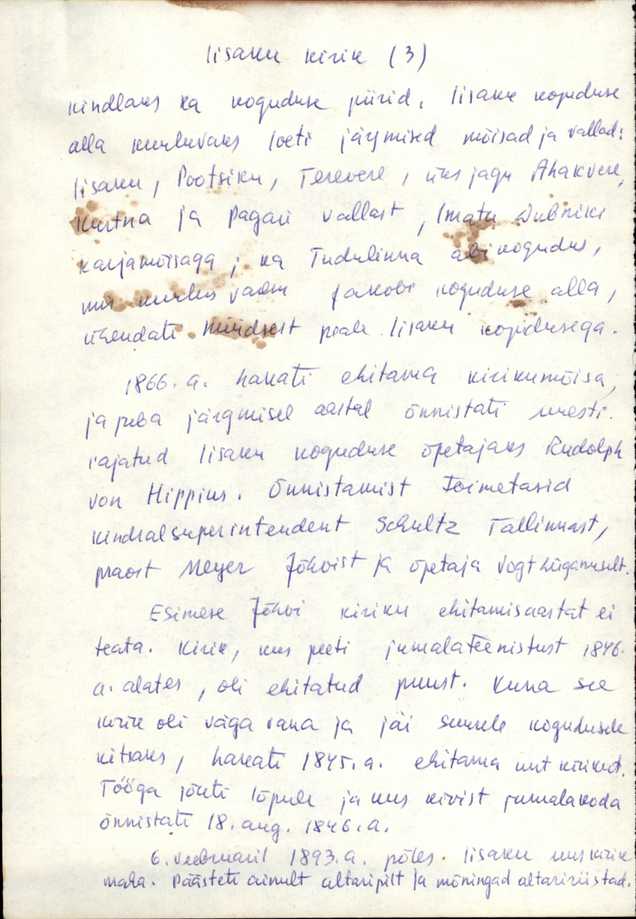 Iisaku kirik (3)
kindlaks ka koguduse piirid. Iisaku koguduse
alla kuuluvaks loeti järgmised mõisad ja vallad:
Iisaku, Pootsiku, Terevere, üks jagu Ahakvere,
Kurtna ja Pagari vallast, Imatu Dubniki
karjamõisaga; ka Tudulinna abikogudus,
mis kuulus vaem Jakobi koguduse alla,
ühendati nüüdsest peale Iisaku kogudusega.
1866. a. hakati ehitama kirikumõisa,
ja juba järgmisel aastal õnnistati uuesti
rajatud Iisaku koguduse õpetajaks Rudolph
von Hippius. Õnnistamist toimetasid
kindralsuperintendent Schultz Tallinnast,
praost Meyer Jõhvist ja õpetaja Vogt Lüganuselt.
Esimese Jõhvi kiriku ehitamisaastat ei
teata. Kirik, kus peeti jumalateenistust 1846.
a. alates, oli ehitatud puust. Kuna see
kirik oli väga vana ja jäi suurele kogudusele
kitsaks, hakati 1845. a. ehitama uut kirikut.
Tööga jõuti lõpule ja uus kivist jumalakoda
õnnistati 18. aug. 1846. a.
6. veebruaril 1893. a. põles Iisaku uus kirik
maha. Päästeti ainult altaripilt ja mõningad altaririistad.